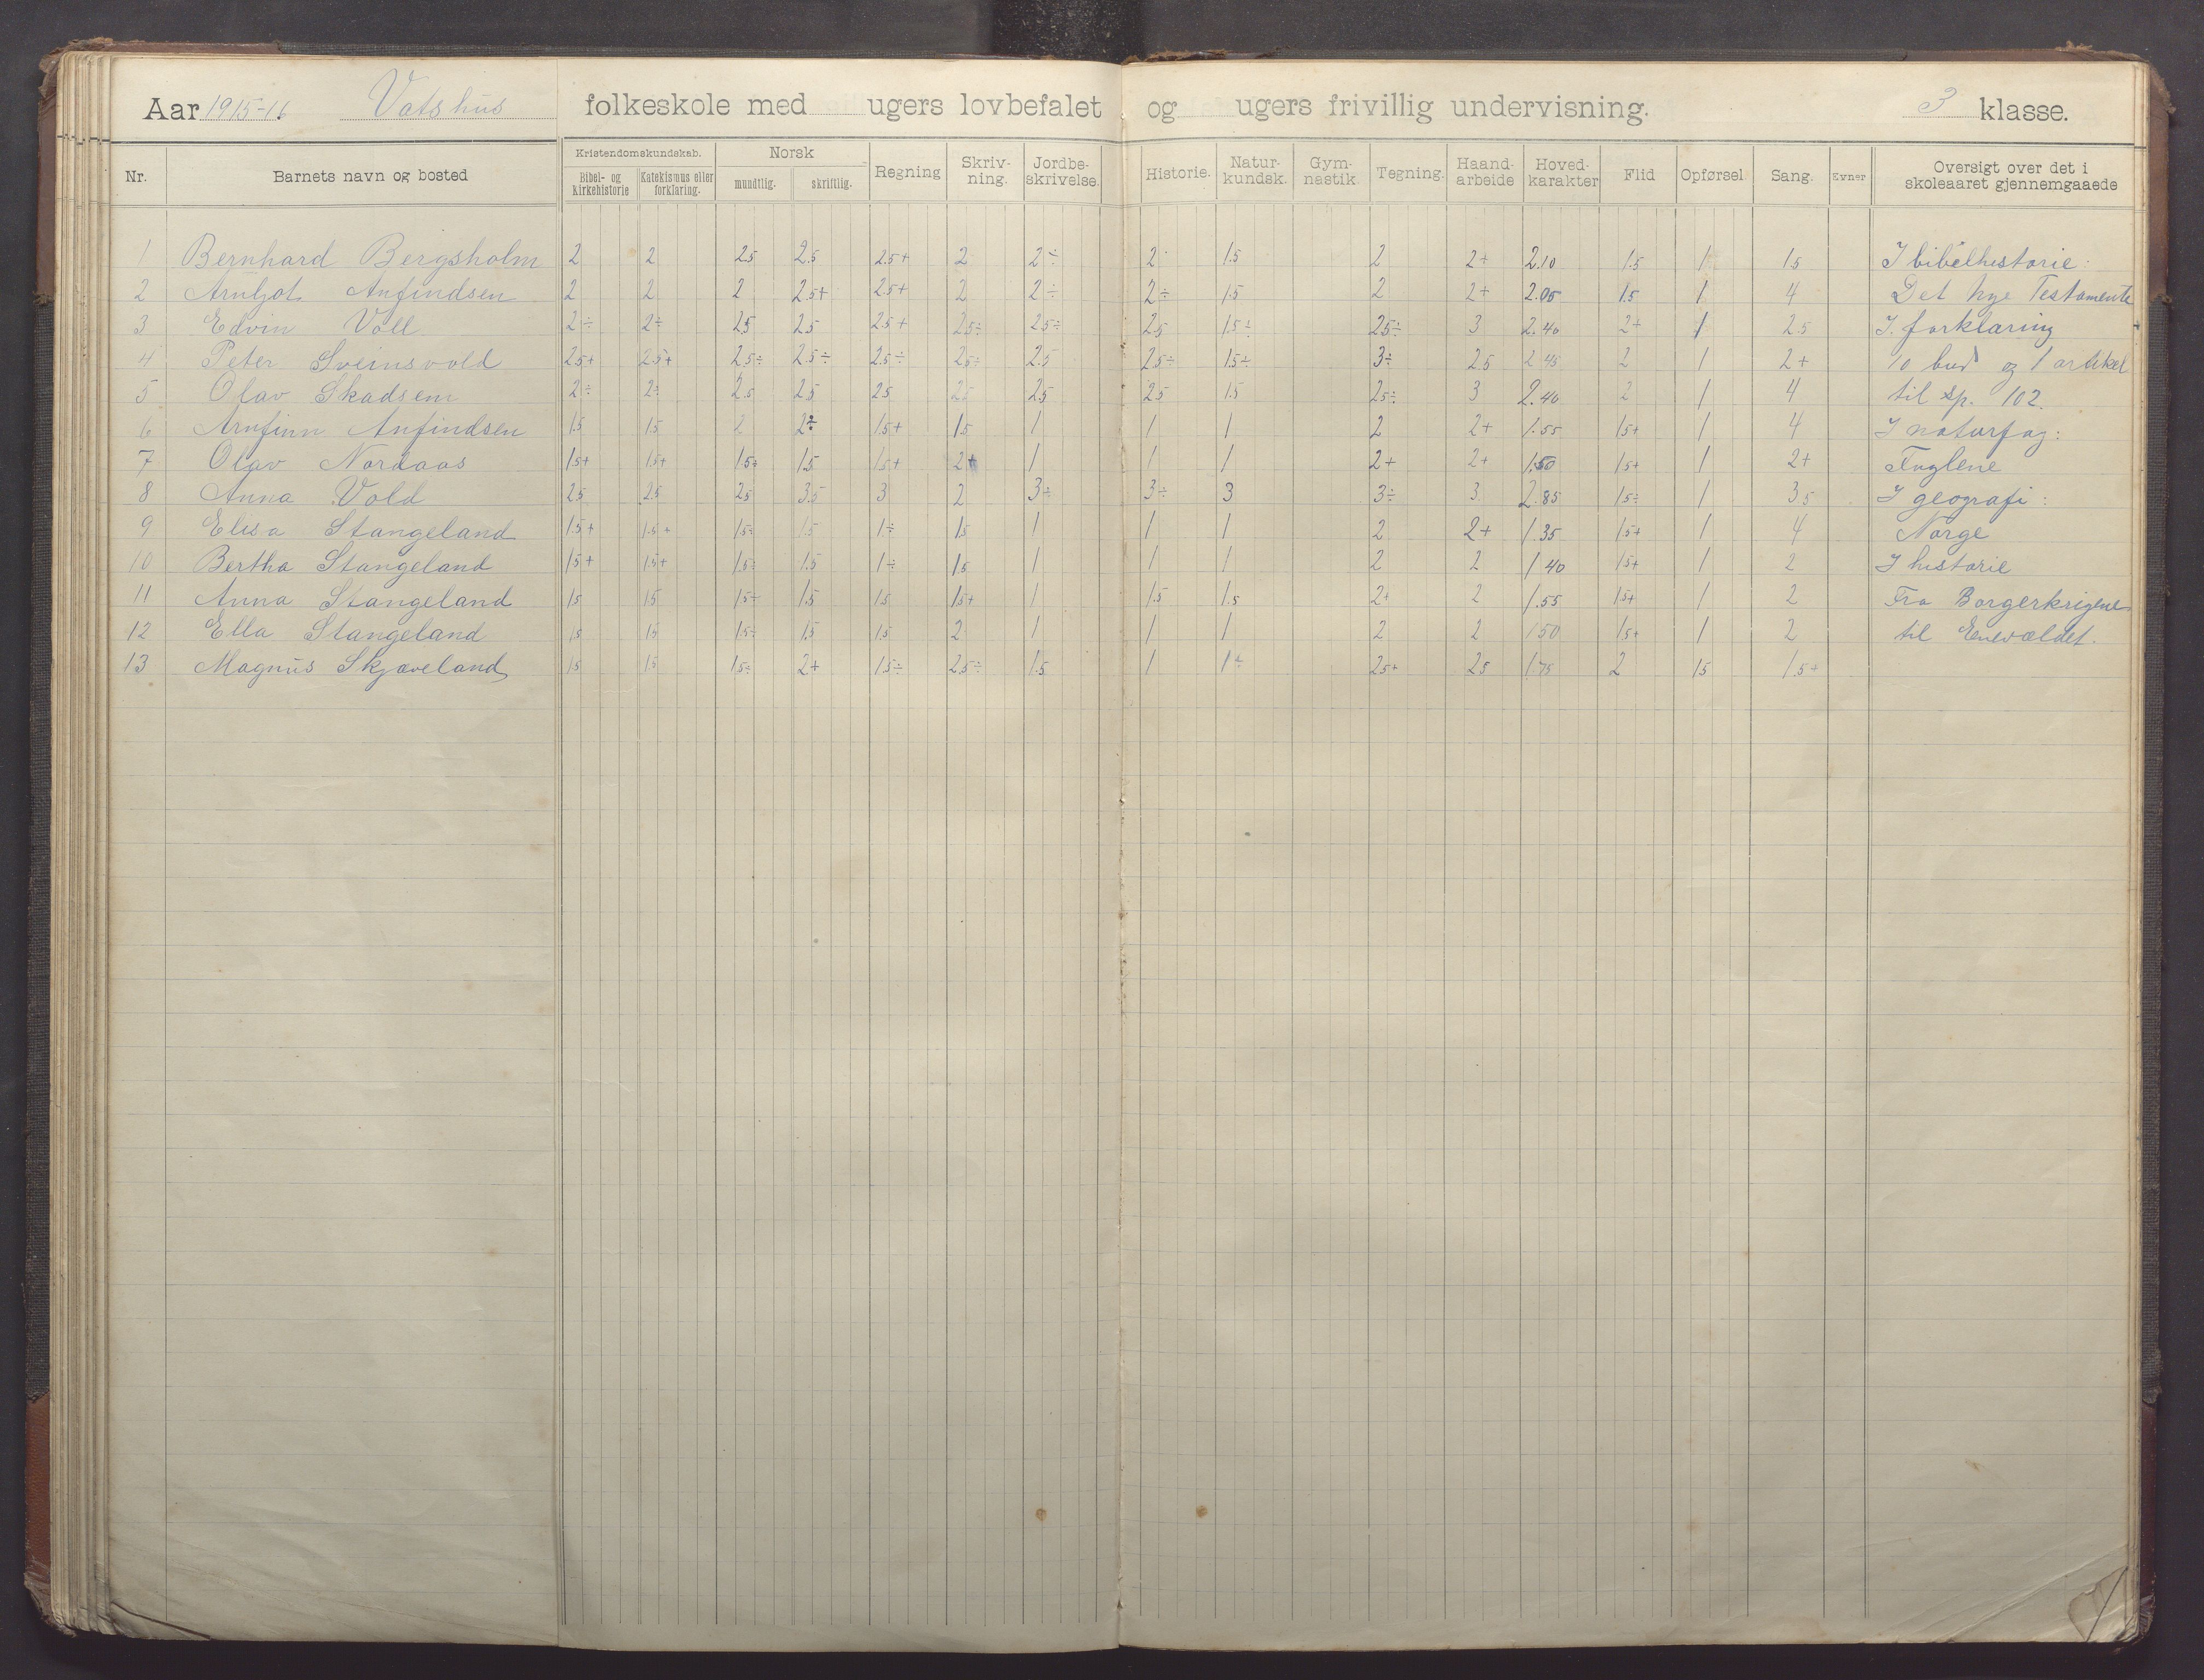 Aar 1915-16 Vatshus folkeskole med ugers lovbefalet og ugers frivillig undervisning. 3 klasse.
Nr. Barnets navn og bosted Kristendomskundskab. Bibel- og kirkehistorie Katekismus eller forklaring. Norsk mundtlig. skriftlig. Regning Skriv-ning. Jordbe-skrivelse. Historie. Natur-kundsk. Gym-nastik. Tegning. Haand-arbeide Hoved-karakter Flid Opførsel Sang. Evner Oversigt over det i skoleaaret gjennemgaaede
1 Bernhard Bergsholm 2 2 2.5 2.5 2.5+ 2 2÷ 2 1.5 2 2+ 2.10 1.5 1 1.5 I bibelhistorie:
2 Arnljot Anfindsen 2 2 2 2.5+ 2.5+ 2 2÷ 2÷ 1.5 2 2+ 2.05 1.5 1 4 Det nye Testamente
3 Edvin Voll 2÷ 2÷ 2.5 2.5 2.5+ 2.5÷ 2.5÷ 2.5 1.5÷ 2.5÷ 3 2.40 2+ 1 2.5 I. forklaring
4 Peter Sveinsvold 2.5+ 2.5+ 2.5÷ 2.5÷ 2.5÷ 2.5÷ 2.5 2.5÷ 1.5÷ 3÷ 2.5 2.45 2 1 2+ 10 bud og 1 artikel
5 Olav Skadsem 2÷ 2÷ 2.5 2.5 2.5 2.5 2.5 2.5 1.5 2.5÷ 3 2.40 2 1 4 til sp. 102.
6 Arnfinn Anfindsen 1.5 1.5 2 2÷ 1.5+ 1.5 1 1 1 2 2+ 1.55 1.5+ 1 4 I naturfag:
7 Olav Nordaas 1.5+ 1.5+ 1.5÷ 1.5 1.5+ 2+ 1 1 1 2+ 2+ 1.50 1.5+ 1 2+ Fuglene
8 Anna Vold 2.5 2.5 2.5 3.5 3 2 3÷ 3÷ 3 3÷ 3 2.85 1.5÷ 1 3.5 I geografi:
9 Elisa Stangeland 1.5+ 1.5+ 1.5÷ 1.5 1÷ 1.5 1 1 1 2 2+ 1.35 1.5+ 1 4 Norge
10 Bertha Stangeland 1.5+ 1.5+ 1.5÷ 1.5 1÷ 1.5 1 1 1 2 2 1.40 1.5+ 1 2 I historie
11 Anna Stangeland 1.5 1.5 1.5÷ 1.5 1.5 1.5+ 1 1.5 1.5 2+ 2 1.55 1.5+ 1 2 Fra Borgerkrigene
12 Ella Stangeland 1.5 1.5 1.5÷ 1.5 1.5 2 1 1 1 2 2 1.50 1.5+ 1 2 til Enevældet.
13 Magnus Skjæveland 1.5 1.5 1.5÷ 2+ 1.5÷ 2.5÷ 1.5 1 1÷ 2.5+ 2.5 1.75 2 1.5 1.5+